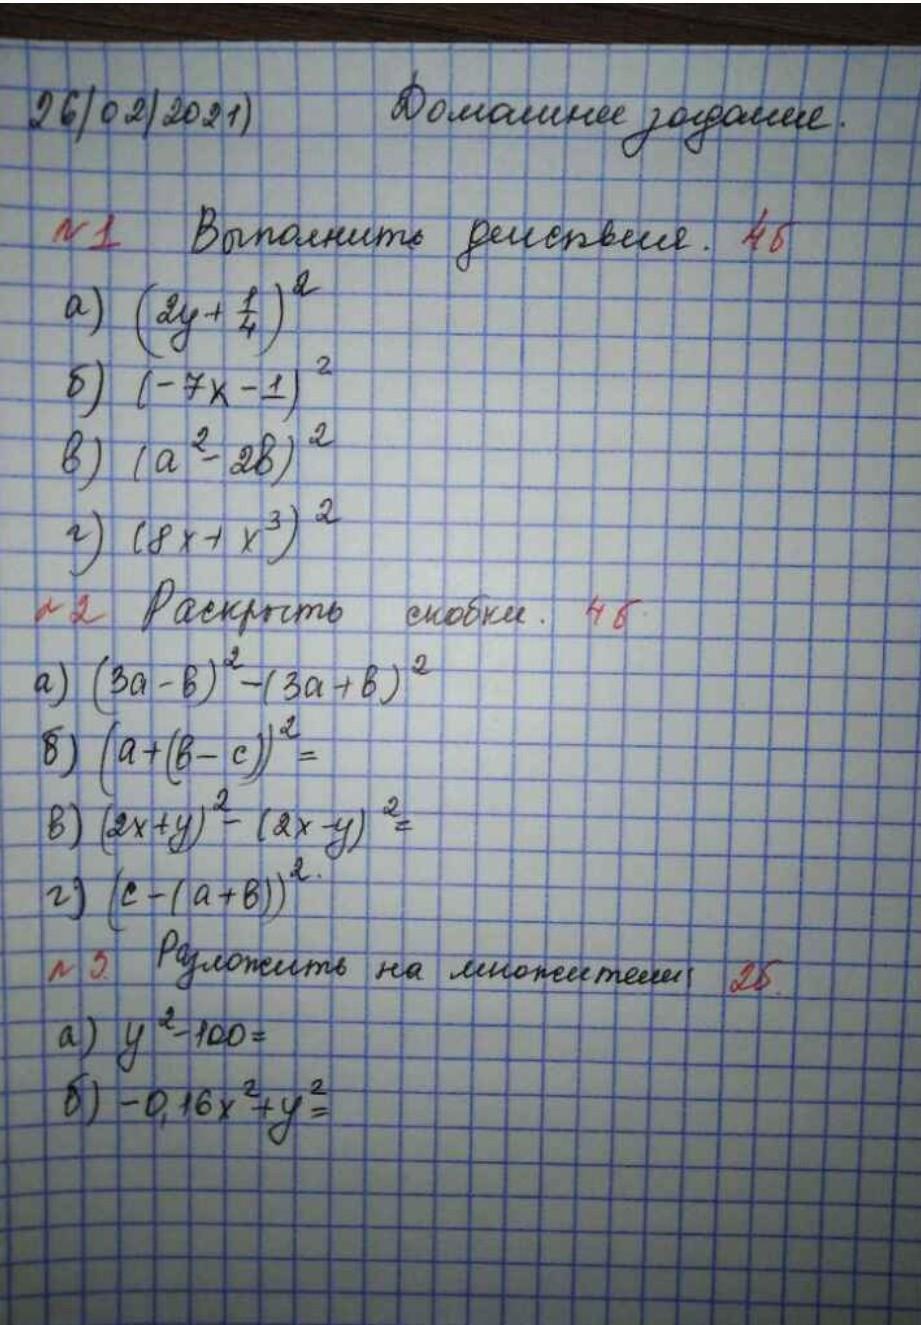 26/02/2021) Домашнее задание.
№1 Выполнить действия. 4б
а) (2y + 1/4)²
б) (-7x - 1)²
в) (a² - 2b)²
г) (8x + x³)²
№2 Раскрыть скобки. 4б.
а) (3a - b)² - (3a + b)²
б) (a + (b - c))² =
в) (2x + y)² - (2x - y)² =
г) (c - (a + b))².
№3. Разложить на множители 2б.
а) y² - 100 =
б) -0,16x² + y² =